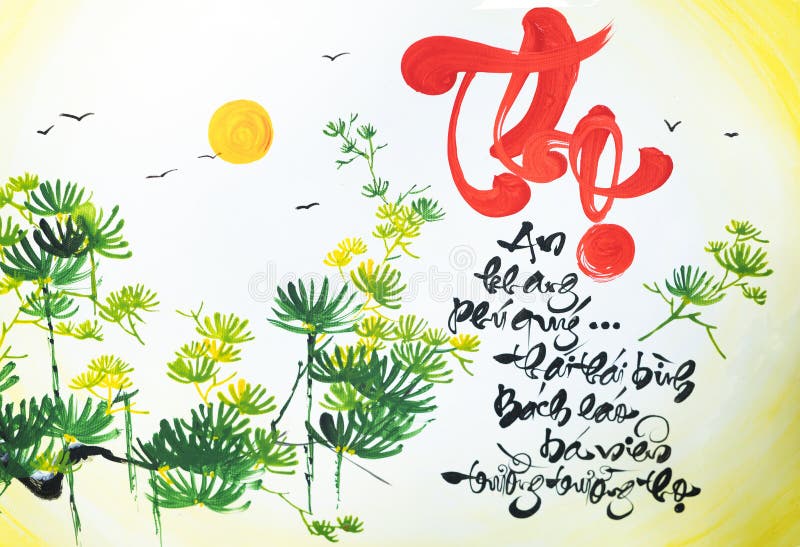 Thọ
An
khang
phú quý...
thái thái bình
Bách lão
bá niên
trường trường thọ
dreamstime